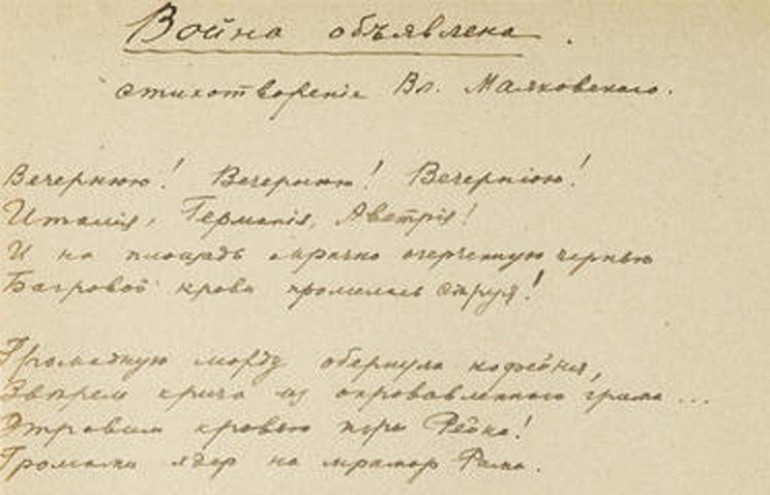 Война объявлена.
стихотворенiе Вл. Маяковского.
Вечернюю! Вечернюю! Вечернюю!
Италiя, Германiя, Австрiя!
И на площадь мрачно очерченную чернью
Багровой крови пролилась струя!
Громадную морду обернула кофейня,
Звѣрем крича из окровавленного грима...
Отравим кровью игры Рейна!
Громами ядер на мрамор Рима.